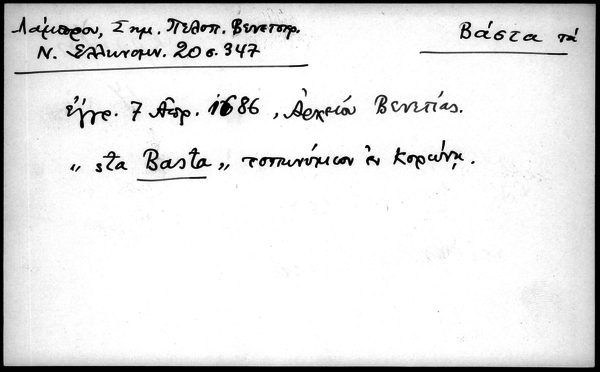 Λάμπρου, Σημ. Πελοπ. Βενετοκρ.
Ν. Ἑλληνομν. 20 σ. 347
Βάστα τά
ἔγγρ. 7 Ἀπρ. 1686, Ἀρχεῖον Βενετίας.
„ sta Basta „ τοπωνύμιον ἐν Κορώνῃ.